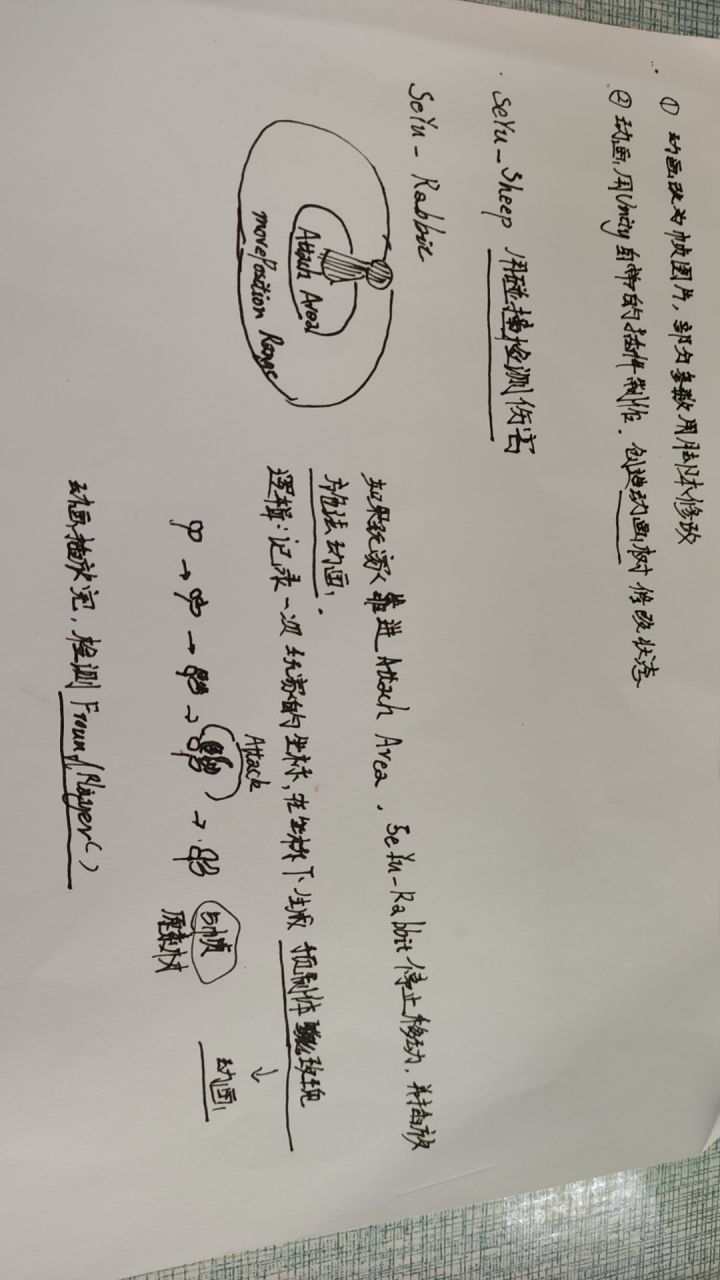 ① 动画改为帧图片，部分参数用脚本修改
② 动画用Unity自带的插件制作．创造动画树修改状态
SeYu_Sheep 用碰撞检测伤害
SeYu-Rabbit
Attach Area
movePosition Range
如果玩家靠进 Attach Area，SeYu-Rabbit 停止移动，并播放
施法动画．
逻辑：记录一次玩家的坐标，在坐标下生成 预制体 玫瑰
Attack
5帧
原素材
动画
动画播放完，检测 Player()